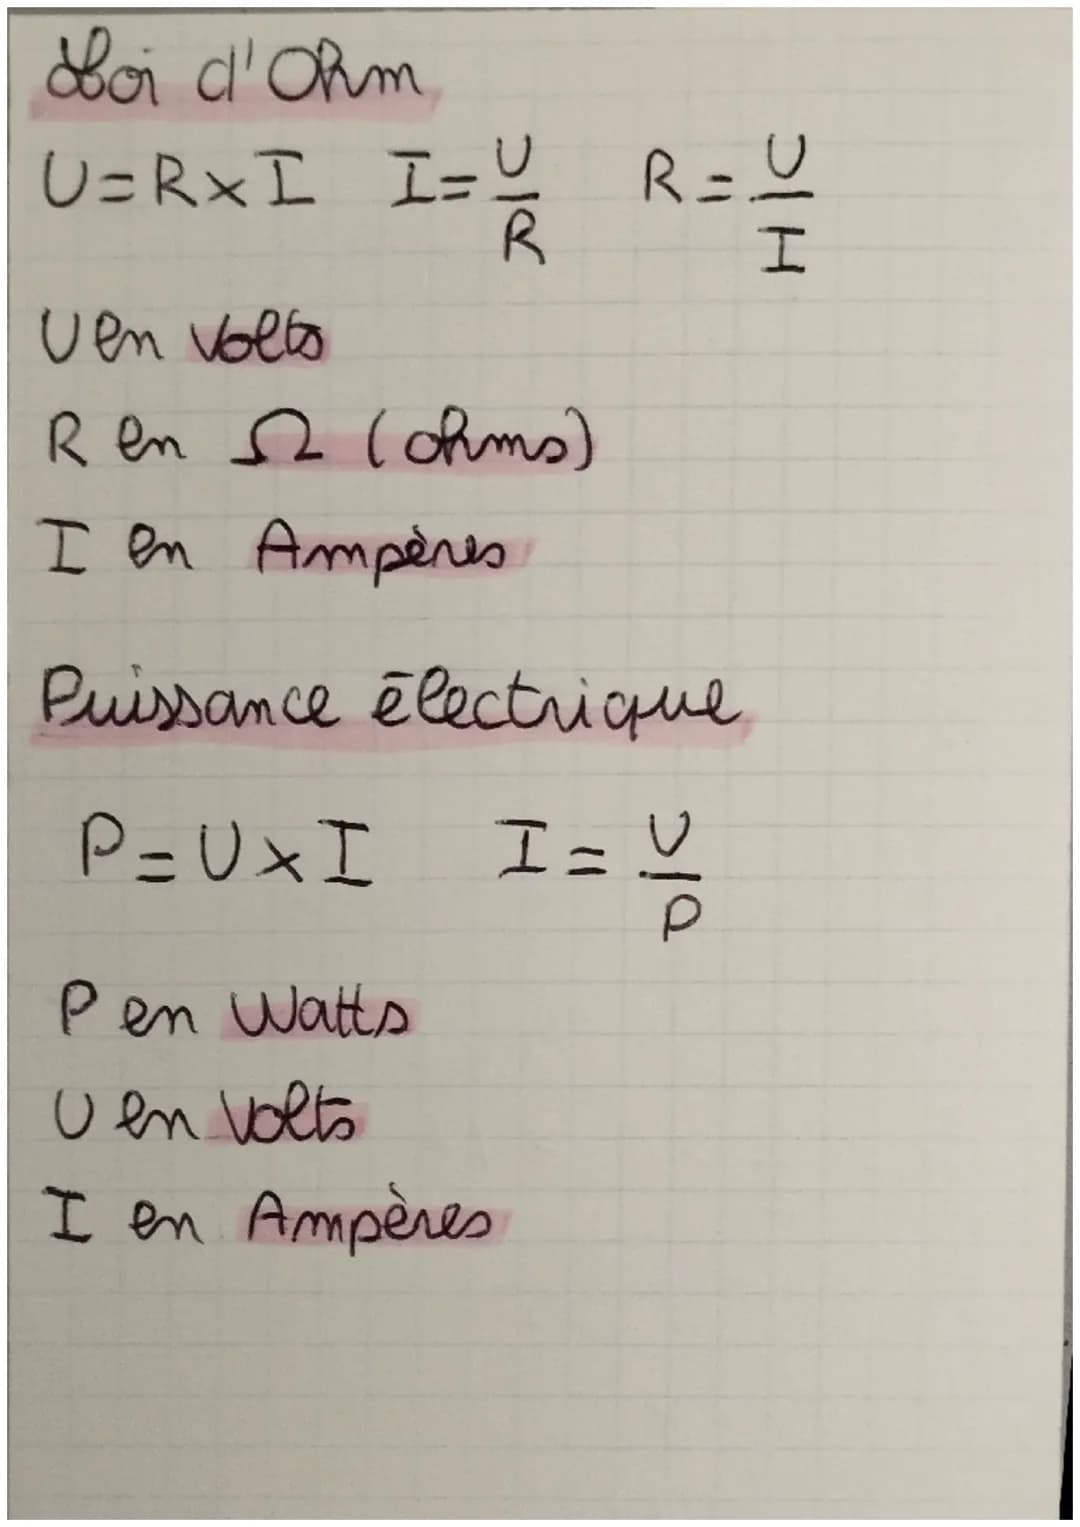 Loi d'Ohm
U=R×I I=U/R R=U/I
U en Volts
R en Ω (ohms)
I en Ampères
Puissance électrique
P=U×I I=U/P
P en Watts
U en Volts
I en Ampères